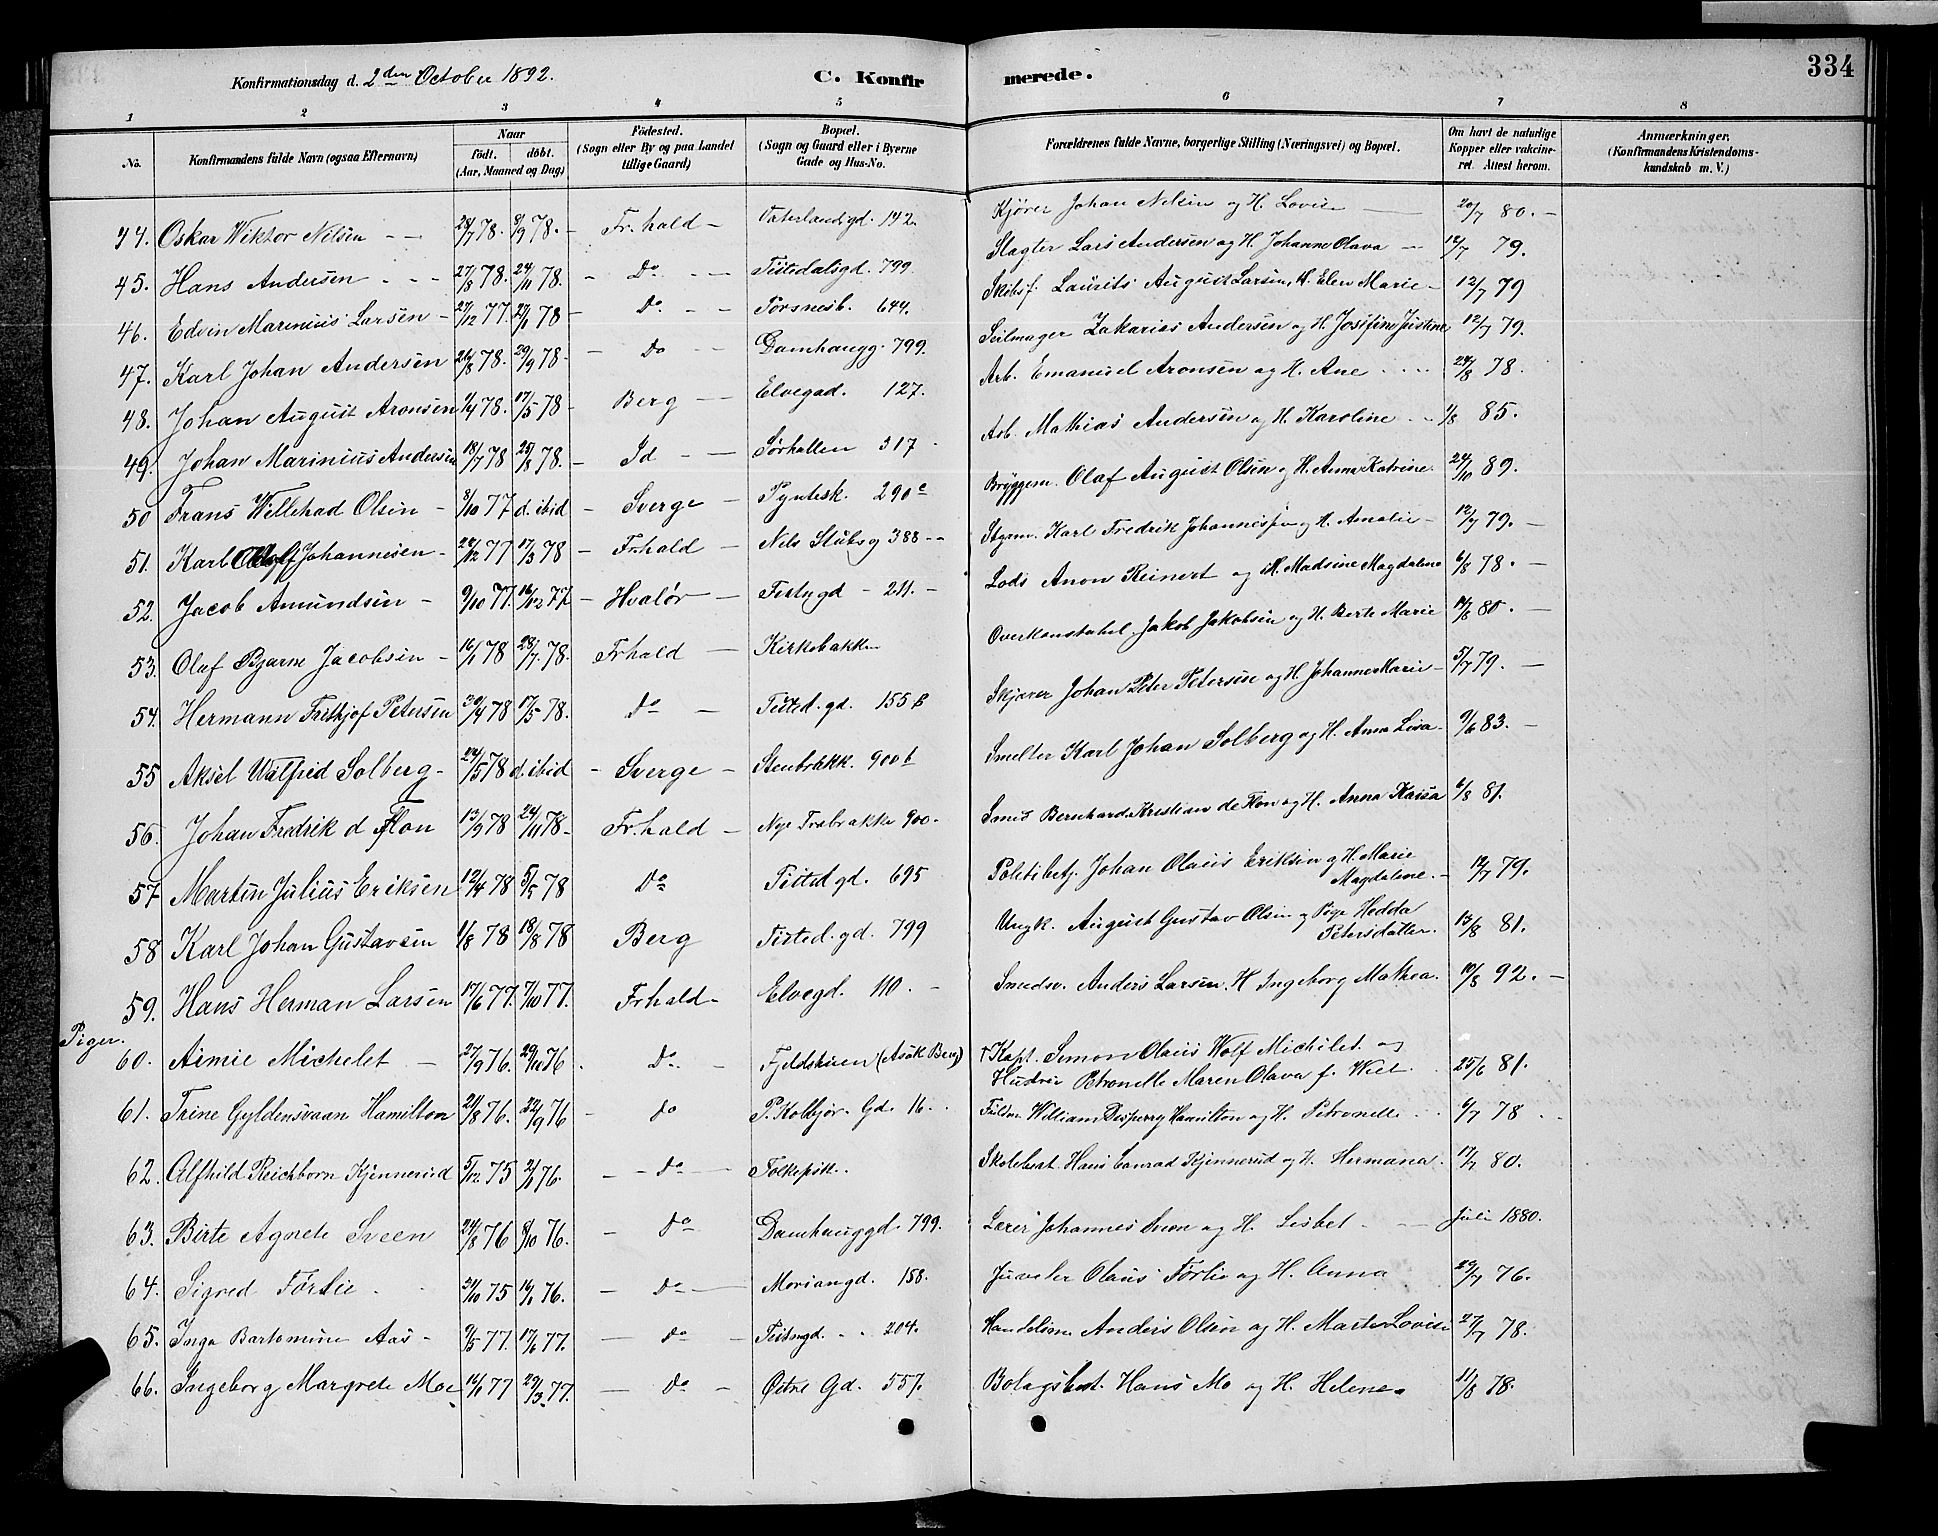 334
Konfirmationsdag d. 2den October 1892. C. Konfirmerede.
1 2 3 4 5 6 7 8
No. Konfirmandens fulde Navn (ogsaa Efternavn) Naar født. døbt. (Aar, Maaned og Dag) Fødested. (Sogn eller By og paa Landet tillige Gaard) Bopæl. (Sogn og Gaard eller i Byerne Gade og Hus-No. Forældrenes fulde Navne, borgerlige Stilling (Næringsvei) og Bopæl. Om havt de naturlige Kopper eller vakcineret. Attest herom. Anmærkninger. (Konfirmandens Kristendomskundskab m. V.)
44. Oskar Wiktor Nilsen 28/7 78. 8/9 78. Fr.hald Vaterlandsgd. 142. Kjører Johan Nelsen og H. Lovise 20/7 80.
45. Hans Andersen 27/8 78. 24/11 78. Do Tistedalsgd. 799. Slagter Lars Andersen og H. Johanne Olava 12/7 79.
46. Edvin Marinius Larsen 27/12 77. 27/1 78 Do Torsnesb. 644. Skibsf. Laurits August Larsen, H. Elen Marie 12/7 79
47. Karl Johan Andersen 26/8 78. 29/9 78 Do Damhaugg. 799. Seilmager Zakarias Andersen og H. Josefine Justine 12/7 79.
48. Johan August Aronsen 9/4 78. 17/5 78 Berg Elvegad. 127. Arb. Emanuel Aronsen og H. Ane 24/8 78.
49. Johan Marinius Andersen 18/7 78 25/8 78. Id Sørhallen 317 Arb. Mathias Andersen og H. Karoline 1/8 85.
50 Frans Willehad Olsen 3/10 77 d. ibid Sverge Pyntesk. 290c Bryggem. Olaf August Olsen og H. Anna Katrine. 24/10 89.
51. Karl Johannesen 24/12 77 17/3 78 Fr.hald Nils Stubsg 388 Styrm. Karl Fredrik Johannesen og H. Amalie 12/7 79.
52. Jacob Amundsen 9/10 77. 16/12 77 Hvaløer Festngd 211. Lods Anon Reinert og H. Madsine Magdalene 6/8 78.
53. Olaf Bjarne Jacobsen 16/1 78 28/7 78. Frhald Kirkebakken Overkonstabel Jakob Jakobsen og H. Berte Marie 14/8 80.
54. Hermann Frithjof Petersen 30/4 78 17/5 78. Do Tisted. gd. 155 B Skjærer Johan Peter Petersen og H. Johanne Marie 5/7 79.
55 Aksel Walfred Solberg 24/5 78 d. ibid Sverge Stenbrækk. 900b Smelter Karl Johan Solberg og H. Anna Lisa 9/6 83.
56. Johan Fredrik d Flon 13/9 78 24/11 78 Fr.hald Nye Træbrakke 900. Smed Bernhard Kristian de Flon og H. Anna Kaisa 6/8 81.
57 Martin Julius Eriksen 12/4 78 5/5 78 Do Tisted gd. 695 Politibetj. Johan Olaus Eriksen og H. Marie Magdalene. 12/7 79.
58 Karl Johan Gustavsen 1/8 78 18/8 78 Berg Tisted. gd. 799 Ungk. August Gustav Olsen og Pige Hedda Petersdatter. 13/8 81.
59. Hans Herman Larsen 17/6 77. 7/10 77. Fr.hald Elvegd. 110. Smedsv. Anders Larsen. H Ingeborg Mathea. 10/8 92.
Piger.
60. Aimie Michelet 27/9 76. 29/10 76 Do Fjeldskuen (Asak Berg) † Kapt. Simon Olaus Wolf Michelet og Hustru Petronelle Maren Olava f. Wiel 25/6 81.
61. Trine Gyldensvaan Hamilton 21/8 76. 22/9 76 do P. Kolbjør. Gd. 16. William Hamilton og H. Petronelle 6/7 78
62. Alfhild Reichborn Kjennerud 5/12 75 2/1 76. Do Folkepsk. Skolebest. Hans Conrad Kjennerud og H. Hermana. 17/7 80.
63. Birte Agnete Sveen 24/8 76 8/10 76. Do Damhauggd. 799. Lærer Johannes Sveen og H. Lisbet Juli 1880.
64. Sigred Førlie 21/10 75 16/1 76. Do Moriangd. 158. Juveler Olaus Førlie og H. Anna 29/7 76.
65. Inga Bartomine Aas 9/5 77. 17/6 77. Do Festngd. 204. Handelsm. Anders Olsen og H. Marte Lovise 27/7 78.
66. Ingeborg Margrete Moe 12/1 77 29/3 77. Do Østre Gd. 557. Bolagsbest. Hans Mo og H. Helene 11/8 78.